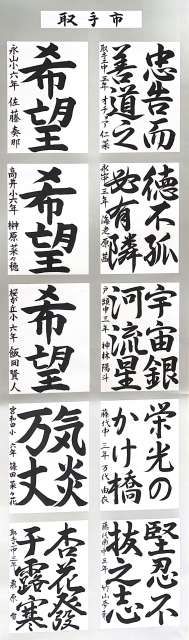 取手市
忠告而
善道之
取手二中三年 オチョア仁菜
希望
永山小六年 佐藤奏那
徳不孤
必有隣
永山中三年 海老原茜
希望
高井小六年 榊原菜の穂
宇宙銀
河流星
戸頭中三年 神林陽斗
希望
桜が丘小六年 飯岡賢人
栄光の
かけ橋
藤代中三年 万代由衣
気炎
万丈
宮和田小六年 篠田菜々花
堅忍不
抜之志
杏花發
干露寒